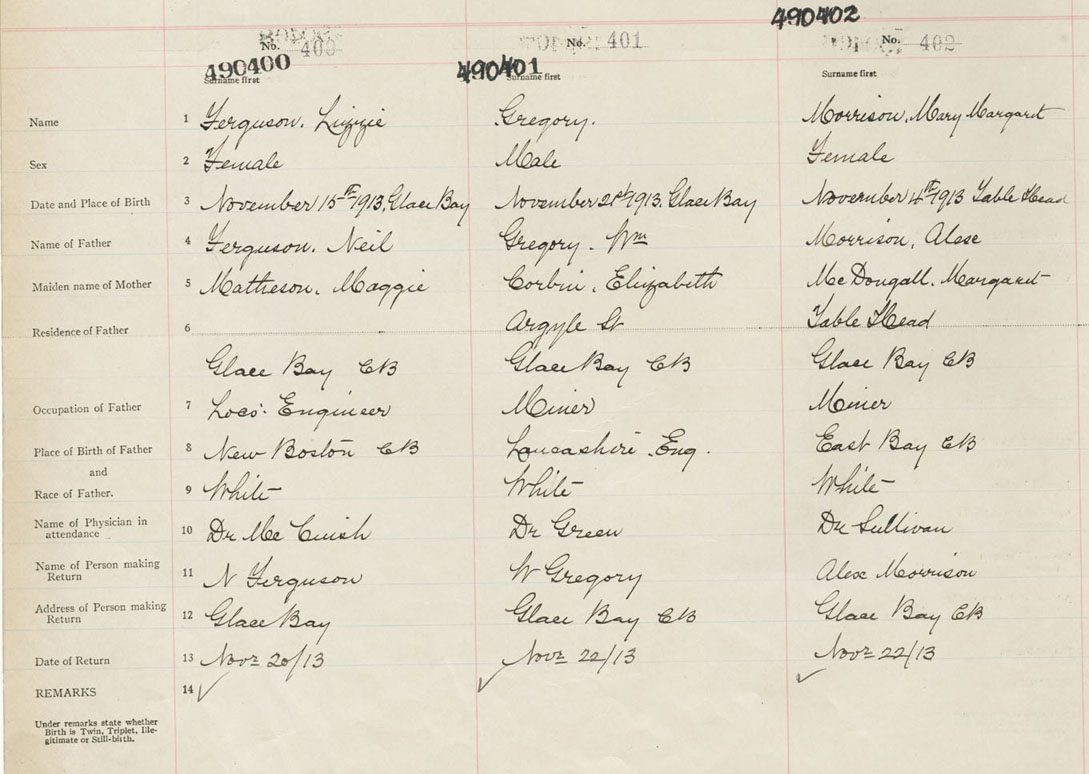 490402
No. 400 No. 401 No. 402
490400 490401
Surname first Surname first Surname first
Name 1 Ferguson. Lizzie Gregory. Morrison, Mary Margaret
Sex 2 Female Male Female
Date and Place of Birth 3 November 15th 1913, Glace Bay November 21st 1913. Glace Bay November 4th 1913 Table Head
Name of Father 4 Ferguson. Neil Gregory. Wm Morrison, Alex
Maiden name of Mother 5 Matheson. Maggie Corbin, Elizabeth McDougall. Margaret
Residence of Father 6 Argyle St Table Head
Glace Bay CB Glace Bay CB Glace Bay CB
Occupation of Father 7 Loco: Engineer Miner Miner
Place of Birth of Father 8 New Boston CB Lancashire Eng. East Bay CB
and
Race of Father. 9 White White White
Name of Physician in
attendance 10 Dr Mc Cuish Dr Green Dr Sullivan
Name of Person making
Return 11 N Ferguson W Gregory Alex Morrison
Address of Person making
Return 12 Glace Bay Glace Bay CB Glace Bay CB
Date of Return 13 Novr 20/13 Novr 22/13 Novr 22/13
REMARKS 14
Under remarks state whether
Birth is Twin, Triplet, Ille-
gitimate or Still-birth.